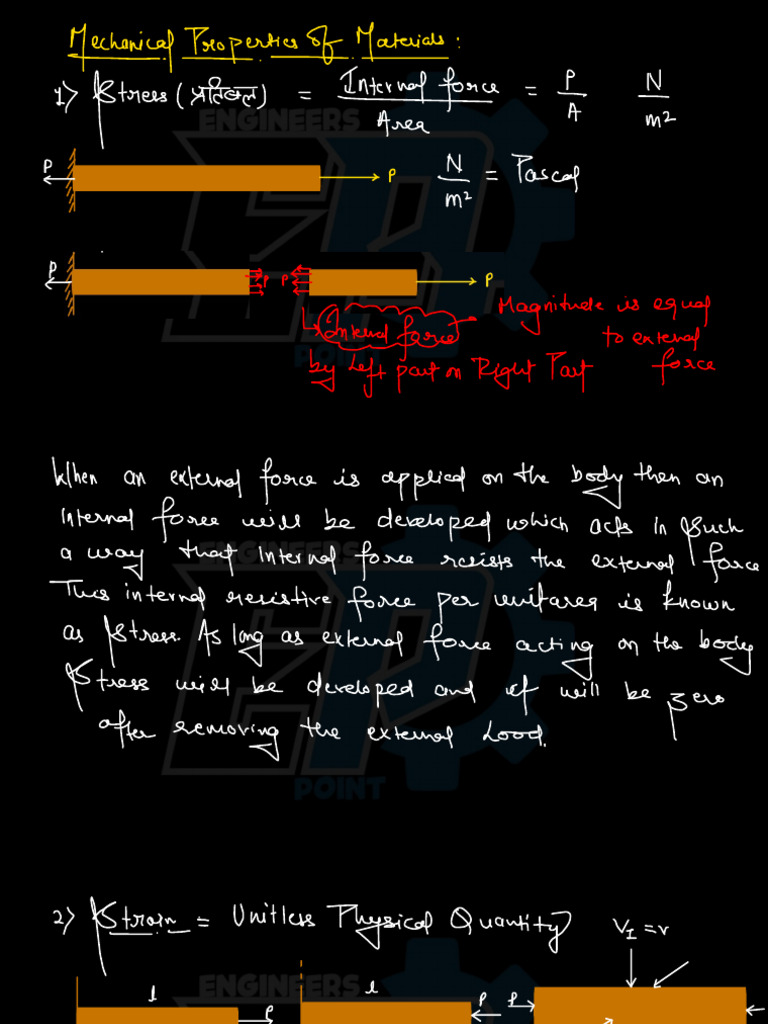 Mechanical Properties Of Materials:
1) Stress (प्रतिबल) = Internal force / Area = P / A N / m²
P P N / m² = Pascal
P P P P
Internal force → Magnitude is equal
to external
by Left part on Right Part force
When an external force is applied on the body then an
internal force will be developed which acts in such
a way that internal force resists the external force
This internal resistive force per unit area is known
as Stress. As long as external force acting on the body
Stress will be developed and it will be zero
after removing the external Load.
2) Strain = Unitless Physical Quantity
V_I = v
l P l P P
ENGINEERS
POINT
ENGINEERS
POINT
ENGINEERS